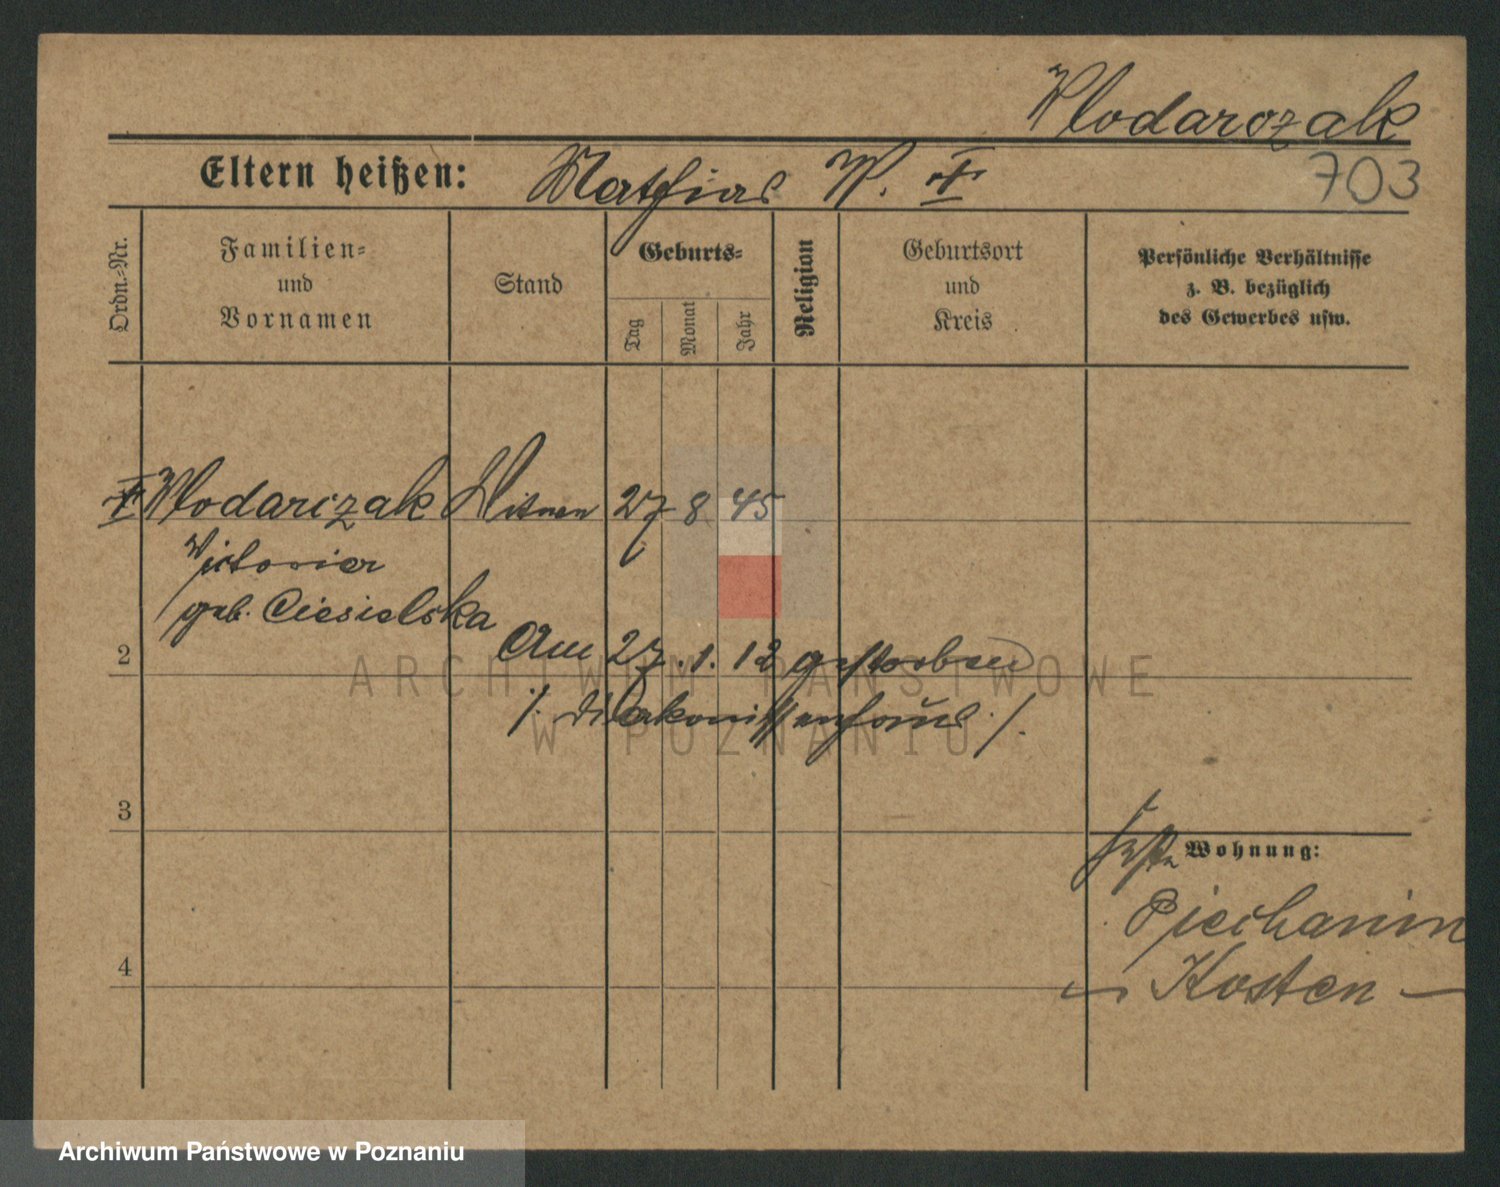 Wlodarczak
Eltern heißen: Mathias W. †
703
Ordn.-Nr.
Familien-
und
Vornamen
Stand
Geburts-
Tag
Monat
Jahr
Religion
Geburtsort
und
Kreis
Persönliche Verhältnisse
z. B. bezüglich
des Gewerbes usw.
† Wlodarczak Witwen 27 8 45
Victoria
geb. Ciesielska
Am 27.1.12 gestorben
2
/. Diakonissenhaus ./.
3
4
Wohnung:
Piechanin
Kosten
ARCHIWUM PAŃSTWOWE
W POZNANIU
Archiwum Państwowe w Poznaniu